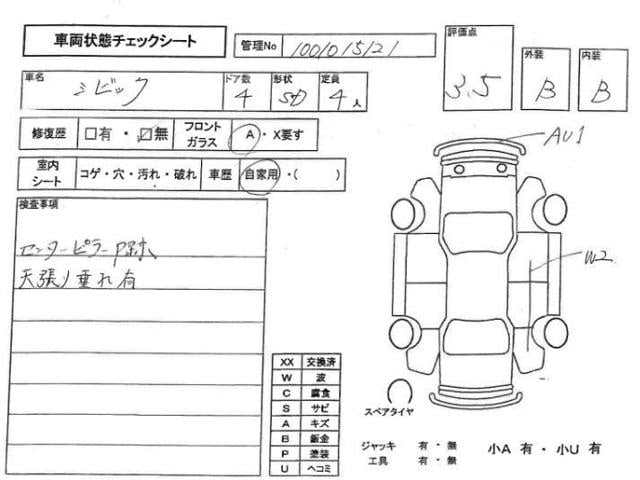 車両状態チェックシート
管理No 1001015121
評価点 3.5
外装 B
内装 B
車名 シビック
ドア数 4
形状 SD
定員 4人
修復歴 □有・☑無
フロントガラス A・X要す
室内シート コゲ・穴・汚れ・破れ
車歴 自家用・( )
検査事項
センターピラーP跡
天張り垂れ有
AU1
W2
XX 交換済
W 波
C 腐食
S サビ
A キズ
B 鈑金
P 塗装
U ヘコミ
スペアタイヤ
ジャッキ 有・無
工具 有・無
小A 有・小U 有